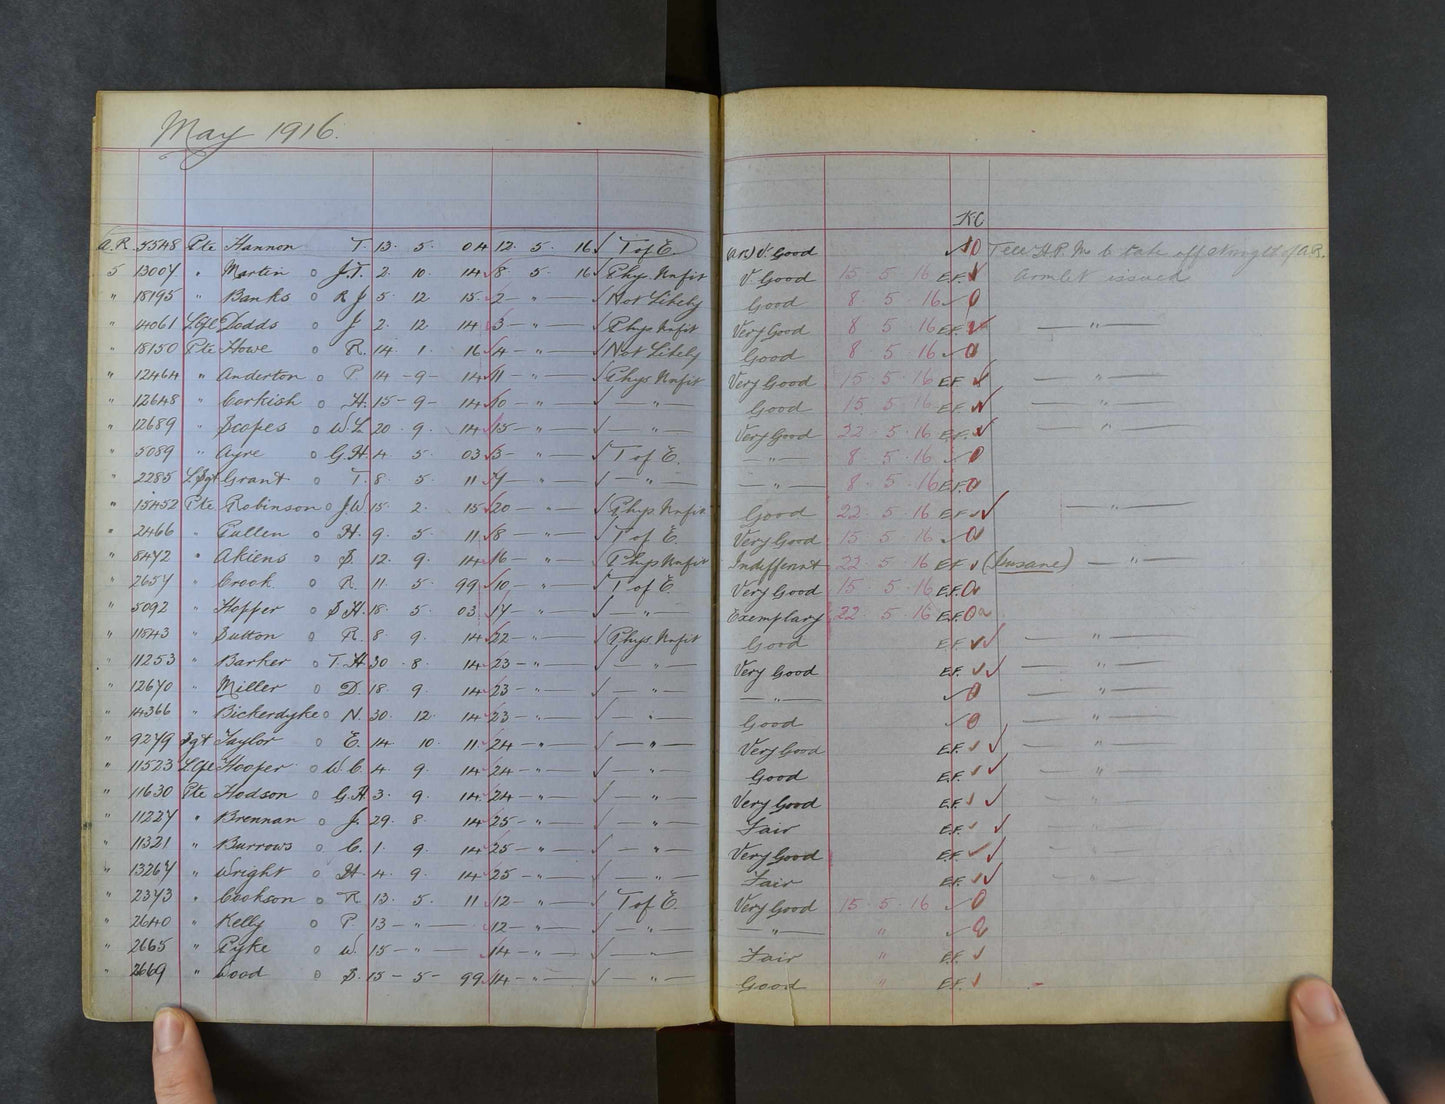 May 1916.
KC
A.R. 5548 Pte Hannon T. 13. 5. 04 12. 5. 16 ✓ T of E. (A.R.) V. Good ✓ O Tell H.P.M. to take off strength of A.R.
5 13007 " Martin o J.T. 2. 10. 14 ✓ 8 5. 16 ✓ Phys. Unfit V. Good 15. 5. 16 E.F. ✓ Armlet issued
" 18195 " Banks o R J 5. 12 15. ✓ 2 — " — ✓ Not Likely Good 8. 5. 16 ✓ O
" 14061 L/Cpl Dodds o J. 2. 12. 14 ✓ 3 — " — ✓ Phys Unfit Very Good 8. 5. 16 E.F. ✓ — " —
" 18150 Pte Howe o R. 14. 1. 16 ✓ 4 — " — ✓ Not Likely Good 8. 5. 16 ✓ O
" 12464 " Anderton o P. 14 – 9 – 14 ✓ 11 — " — ✓ Phys Unfit Very Good 15. 5. 16 E.F. ✓ — " —
" 12648 " Corkish o H. 15 – 9 – 14 ✓ 10 — " — ✓ — " — Good 15. 5. 16 E.F. ✓ — " —
" 12689 " Scopes o W L. 20. 9. 14 ✓ 15 — " — ✓ — " — Very Good 22. 5. 16 E.F. ✓ — " —
" 5089 " Ayre o G.H. 4. 5 03 ✓ 3 — " — ✓ T of E. — " — 8. 5. 16 ✓ O
" 2285 L/Sgt Grant o T. 8. 5. 11 ✓ 7 — " — ✓ — " — — " — 8. 5. 16 E.F. O
" 15452 Pte Robinson o J.W. 15. 2. 15 ✓ 20 — " — ✓ Phys. Unfit Good 22. 5. 16 E.F. ✓✓ — " —
" 2466 " Pullen o H. 9. 5 11 ✓ 8 — " — ✓ T of E. Very Good 15. 5. 16 ✓ O
" 8472 " Akiens o S. 12. 9. 14 ✓ 16 — " — ✓ Phys Unfit Indifferent 22. 5. 16 E.F. ✓ (Insane) — " —
" 2657 " Crook o R. 11. 5. 99 ✓ 10 — " — ✓ T of E. Very Good 15. 5. 16 E.F. O
" 5092 " Hopper o S H. 18. 5 03. ✓ 17 — " — ✓ — " — Exemplary 22. 5. 16 E.F. O
" 11843 " Sutton o R. 8. 9. 14 ✓ 22 — " — ✓ Phys. Unfit Good E.F. ✓✓ — " —
" 11253 " Barker o T. H. 30. 8. 14 ✓ 23 — " — ✓ — " — Very Good E.F. ✓✓ — " —
" 12670 " Miller o D. 18. 9. 14 ✓ 23 — " — ✓ — " — — " — ✓ O — " —
" 14366 " Bickerdyke o N. 30. 12. 14 ✓ 23 — " — ✓ — " — Good ✓ O — " —
" 9279 Sgt Taylor o E. 14. 10. 11. ✓ 24 — " — ✓ — " — Very Good E.F. ✓ ✓ — " —
" 11523 L/Cpl Hooper o W. C. 4. 9. 14 ✓ 24 — " — ✓ — " — Good E.F. ✓ ✓ — " —
" 11630 Pte Hodson o G. H. 3. 9. 14. ✓ 24 — " — ✓ — " — Very Good E.F. ✓ ✓ — " —
" 11227 " Brennan o J. 29. 8. 14 ✓ 25 — " — ✓ — " — Fair E.F. ✓ ✓ — " —
" 11321 " Burrows o C. 1. 9. 14 ✓ 25 — " — ✓ — " — Very Good E.F. ✓ ✓ — " —
" 13267 " Wright o H. 4. 9. 14 ✓ 25 — " — ✓ — " — Fair E.F. ✓✓ — " —
" 2373 " Cookson o R. 13. 5. 11 ✓ 12 — " — ✓ T of E. Very Good 15. 5. 16 ✓ O
" 2640 " Kelly o P. 13 — " — 12 — " — ✓ — " — — " — " ✓ O
" 2665 " Pyke o W. 15 — " — ✓ 14 — " — ✓ — " — Fair " E.F. ✓
" 2669 " Wood o S. 15 – 5 – 99 ✓ 14 — " — ✓ — " — Good. " E.F. ✓